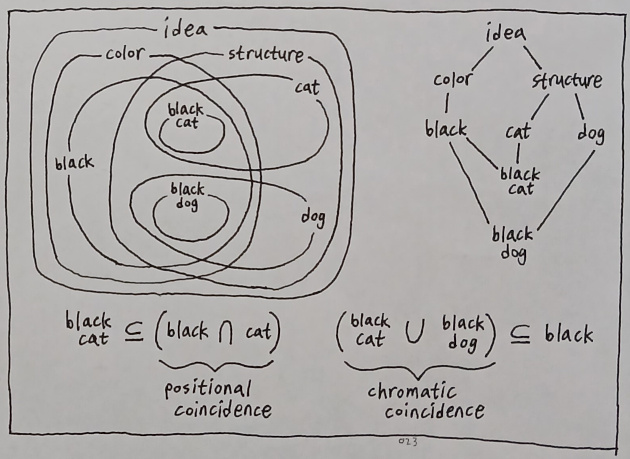 idea
color
structure
cat
black
cat
black
black
dog
dog
idea
color
structure
black
cat
dog
black
cat
black
dog
black
cat ⊆ (black ∩ cat)
positional
coincidence
(black
cat ∪ black
dog) ⊆ black
chromatic
coincidence
023